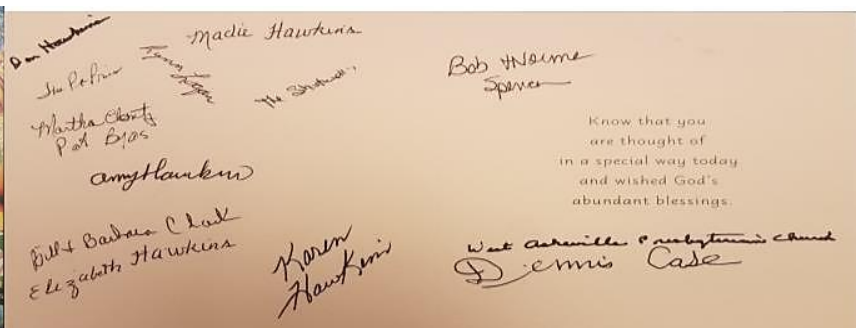 Don Hawkins
Madie Hawkins
Lynn
Jim
The
Martha
Pat Byas
Amy Hawkins
Bill & Barbara Clark
Elizabeth Hawkins
Karen
Hawkins
Bob & Norma
Spencer
Know that you
are thought of
in a special way today
and wished God's
abundant blessings.
West Asheville Presbyterian Church
Dennis Case